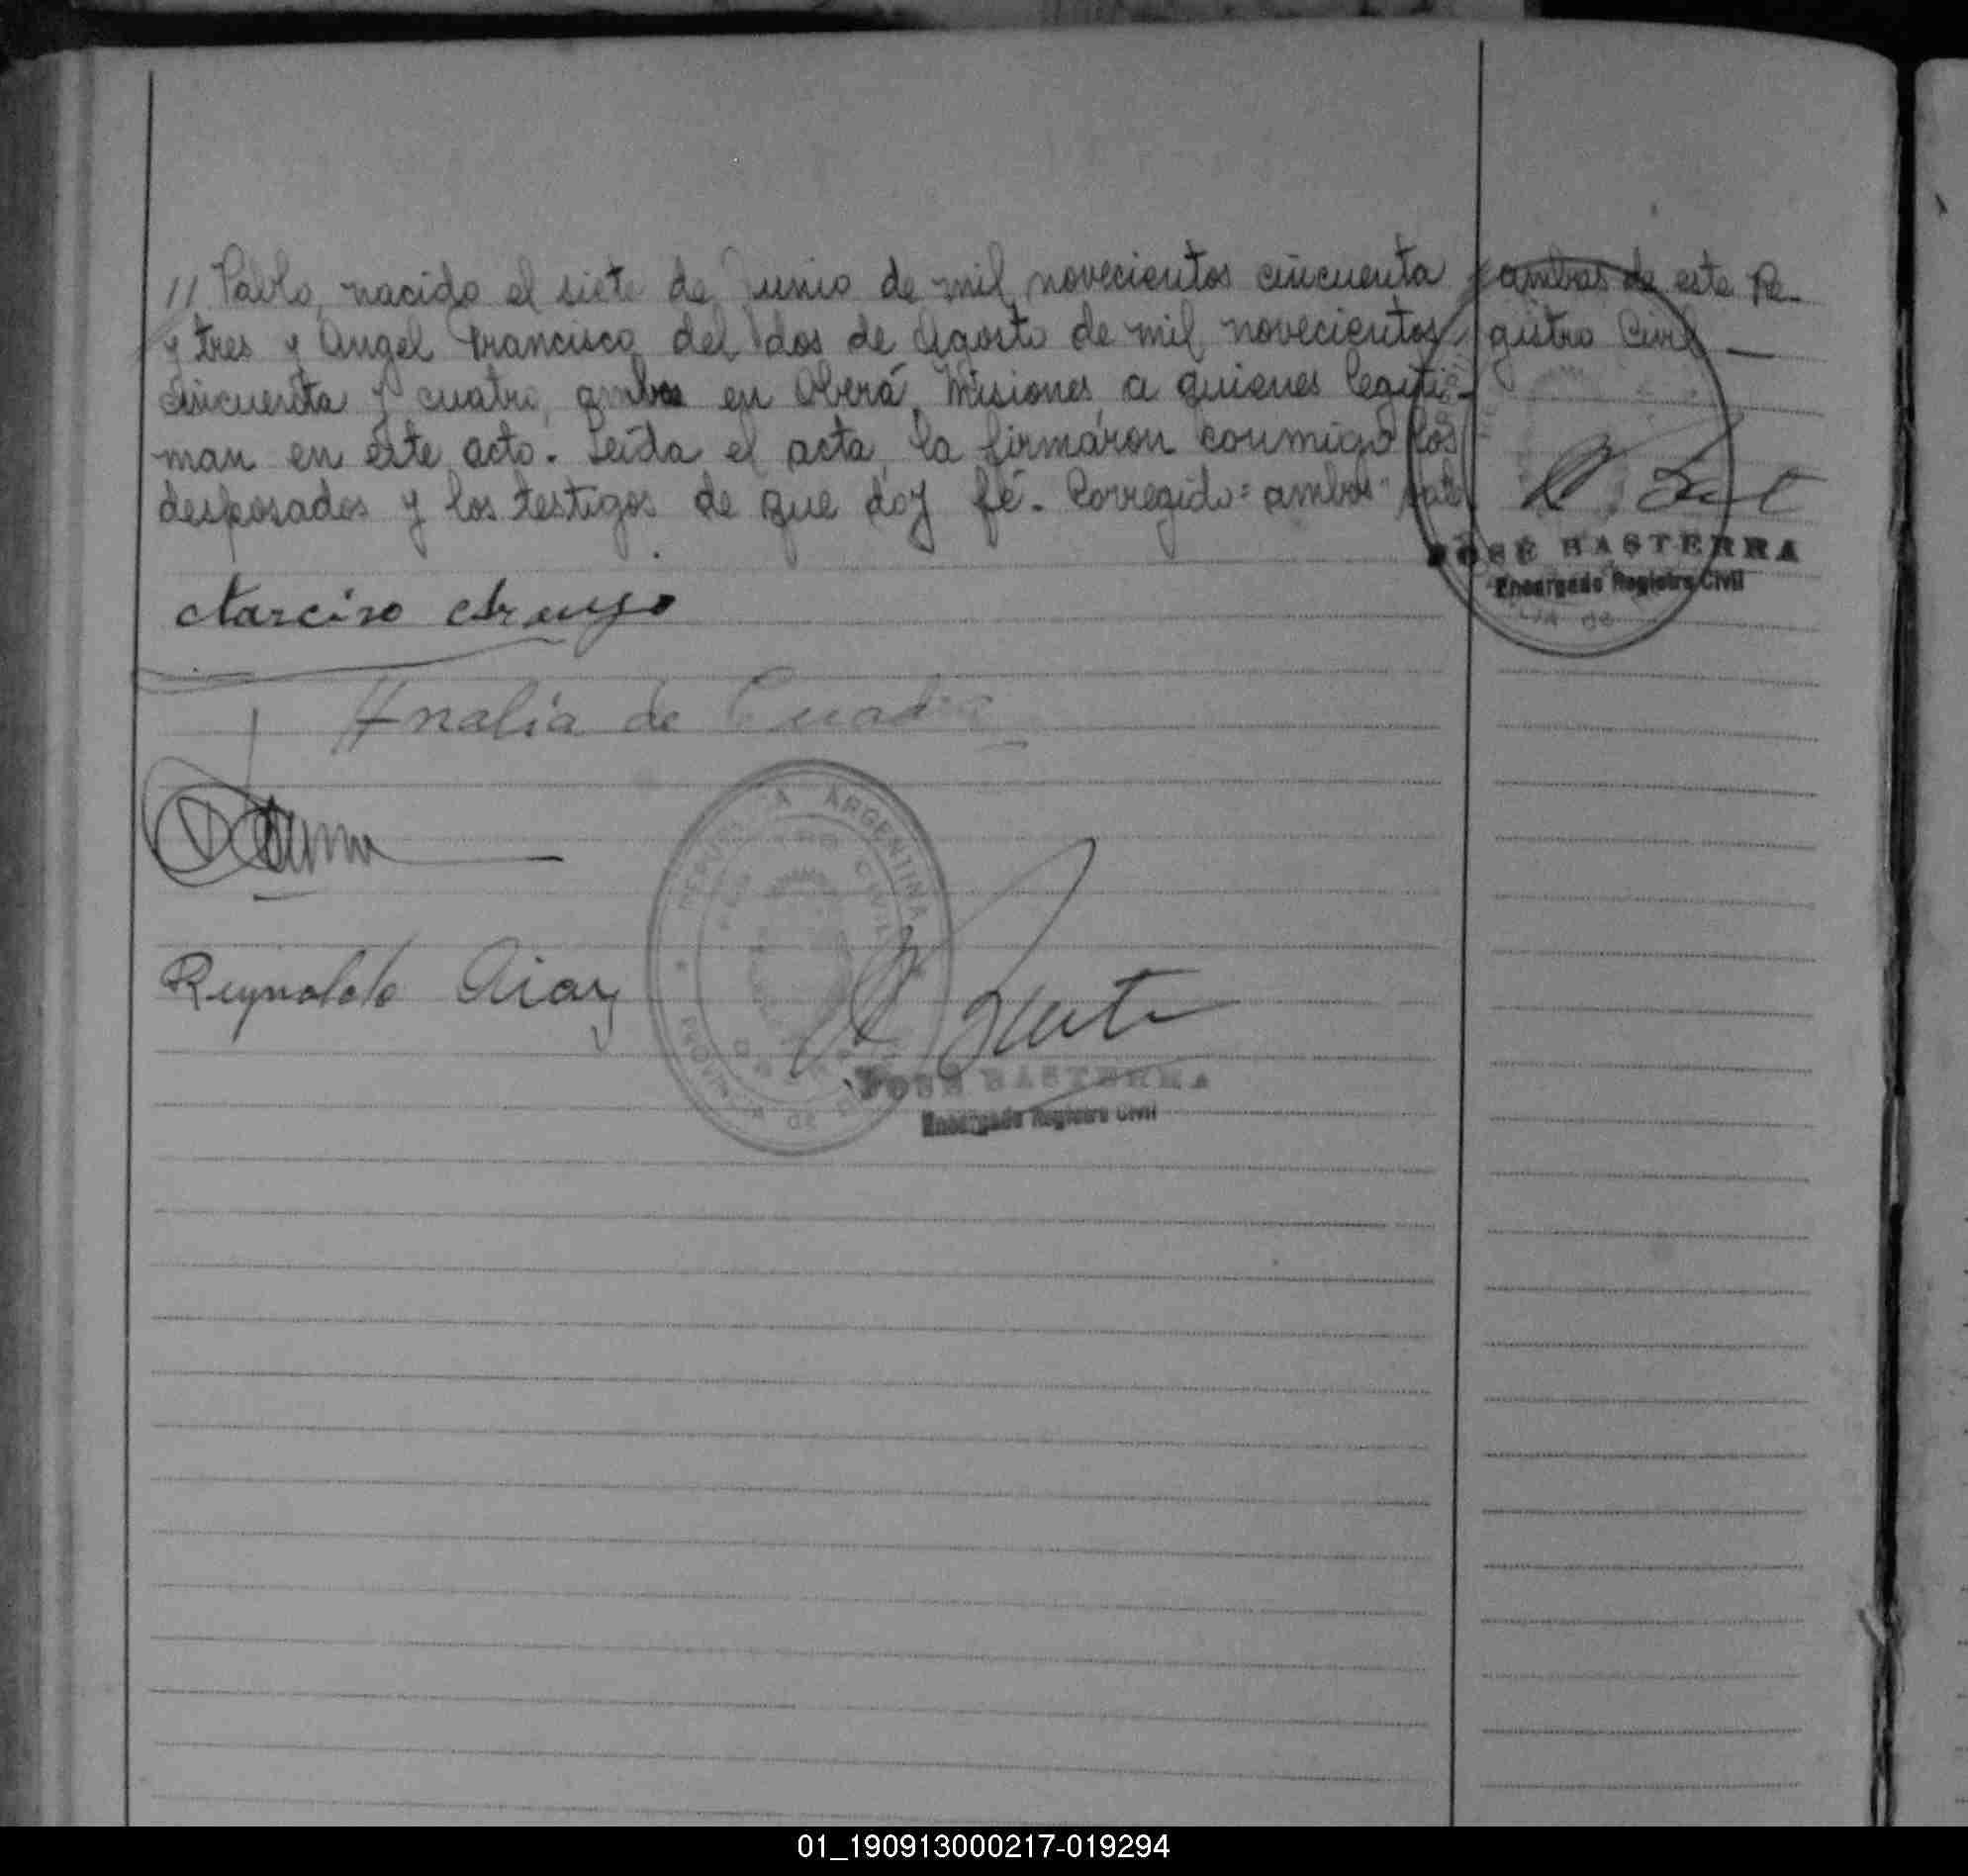 // Pablo, nacido el siete de Junio de mil novecientos cincuenta
y tres y Angel Francisco del dos de Agosto de mil novecientos
cincuenta y cuatro, ambos en Oberá, Misiones, a quienes legiti-
man en éste acto. Leída el acta, la firmáron conmigo los
desposados y los testigos de que doy fé. Corregido = ambos" vale
ambas de este Re-
gistro Civil —
JOSÉ BASTERRA
Encargado Registro Civil
Narciso Araujo
Analía de Cuadra
Reynaldo Diaz
REPUBLICA ARGENTINA
REGISTRO CIVIL
JOSÉ BASTERRA
Encargado Registro Civil
01_190913000217-019294